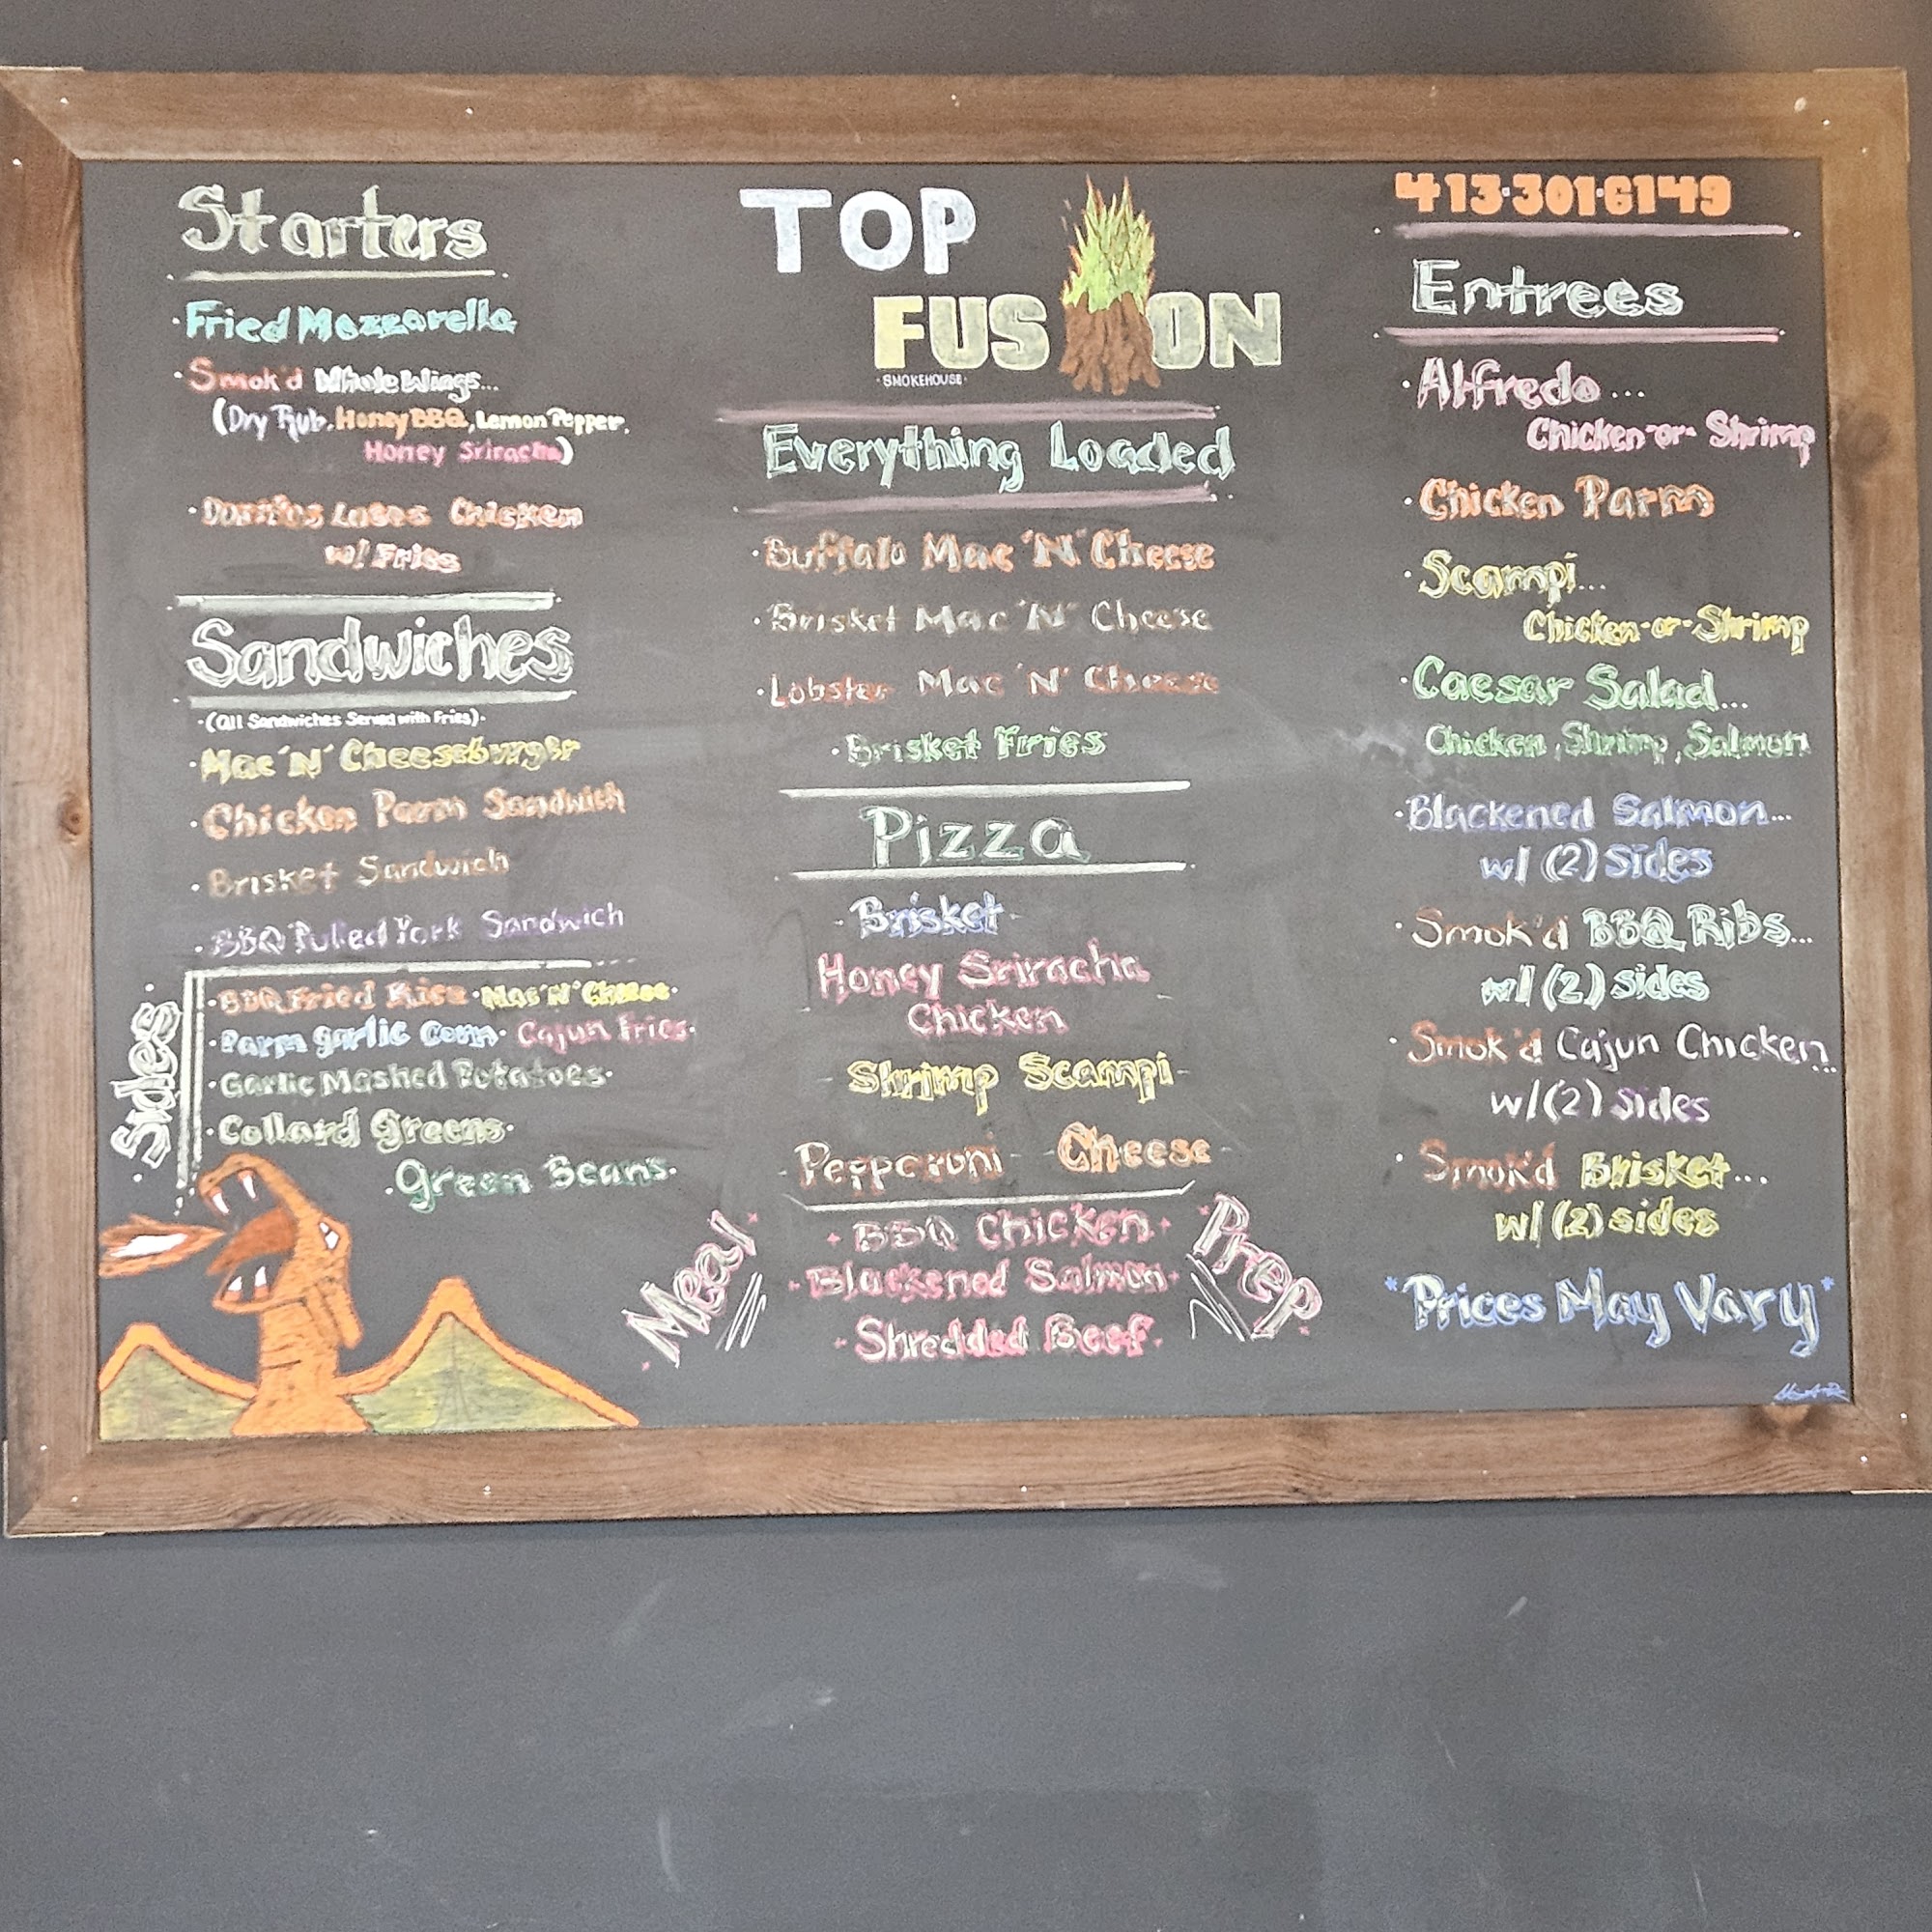 Starters
·Fried Mozzarella
·Smok'd Whole Wings...
(Dry Rub, Honey BBQ, Lemon Pepper,
Honey Sriracha)
·Doritos Locos Chicken
w/ Fries
Sandwiches
·(All Sandwiches Served with Fries)·
·Mac 'N' Cheeseburger
·Chicken Parm Sandwich
·Brisket Sandwich
·BBQ Pulled Pork Sandwich
·Sides·
·BBQ Fried Rice ·Mac 'N' Cheese·
·Parm garlic Corn· Cajun Fries·
·Garlic Mashed Potatoes·
·Collard greens·
·green Beans·
TOP
FUSION
·SMOKEHOUSE·
Everything Loaded
·Buffalo Mac 'N' Cheese
·Brisket Mac 'N' Cheese
·Lobster Mac 'N' Cheese
·Brisket Fries
Pizza
-Brisket-
Honey Sriracha
Chicken
-Shrimp Scampi-
-Pepperoni- -Cheese-
Meal Prep
·BBQ Chicken·
·Blackened Salmon·
·Shredded Beef·
413·301·6149
Entrees
·Alfredo...
Chicken-or-Shrimp
·Chicken Parm
·Scampi...
Chicken-or-Shrimp
·Caesar Salad...
Chicken, Shrimp, Salmon
·Blackened Salmon...
w/ (2) sides
·Smok'd BBQ Ribs...
w/ (2) sides
·Smok'd Cajun Chicken...
w/ (2) sides
·Smok'd Brisket...
w/ (2) sides
*Prices May Vary*